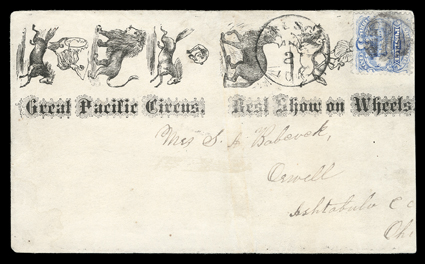 Great Pacific Circus. Best Show on Wheels.
Mrs S. A. Babcock,
Orwell
Ashtabula Co
Ohi